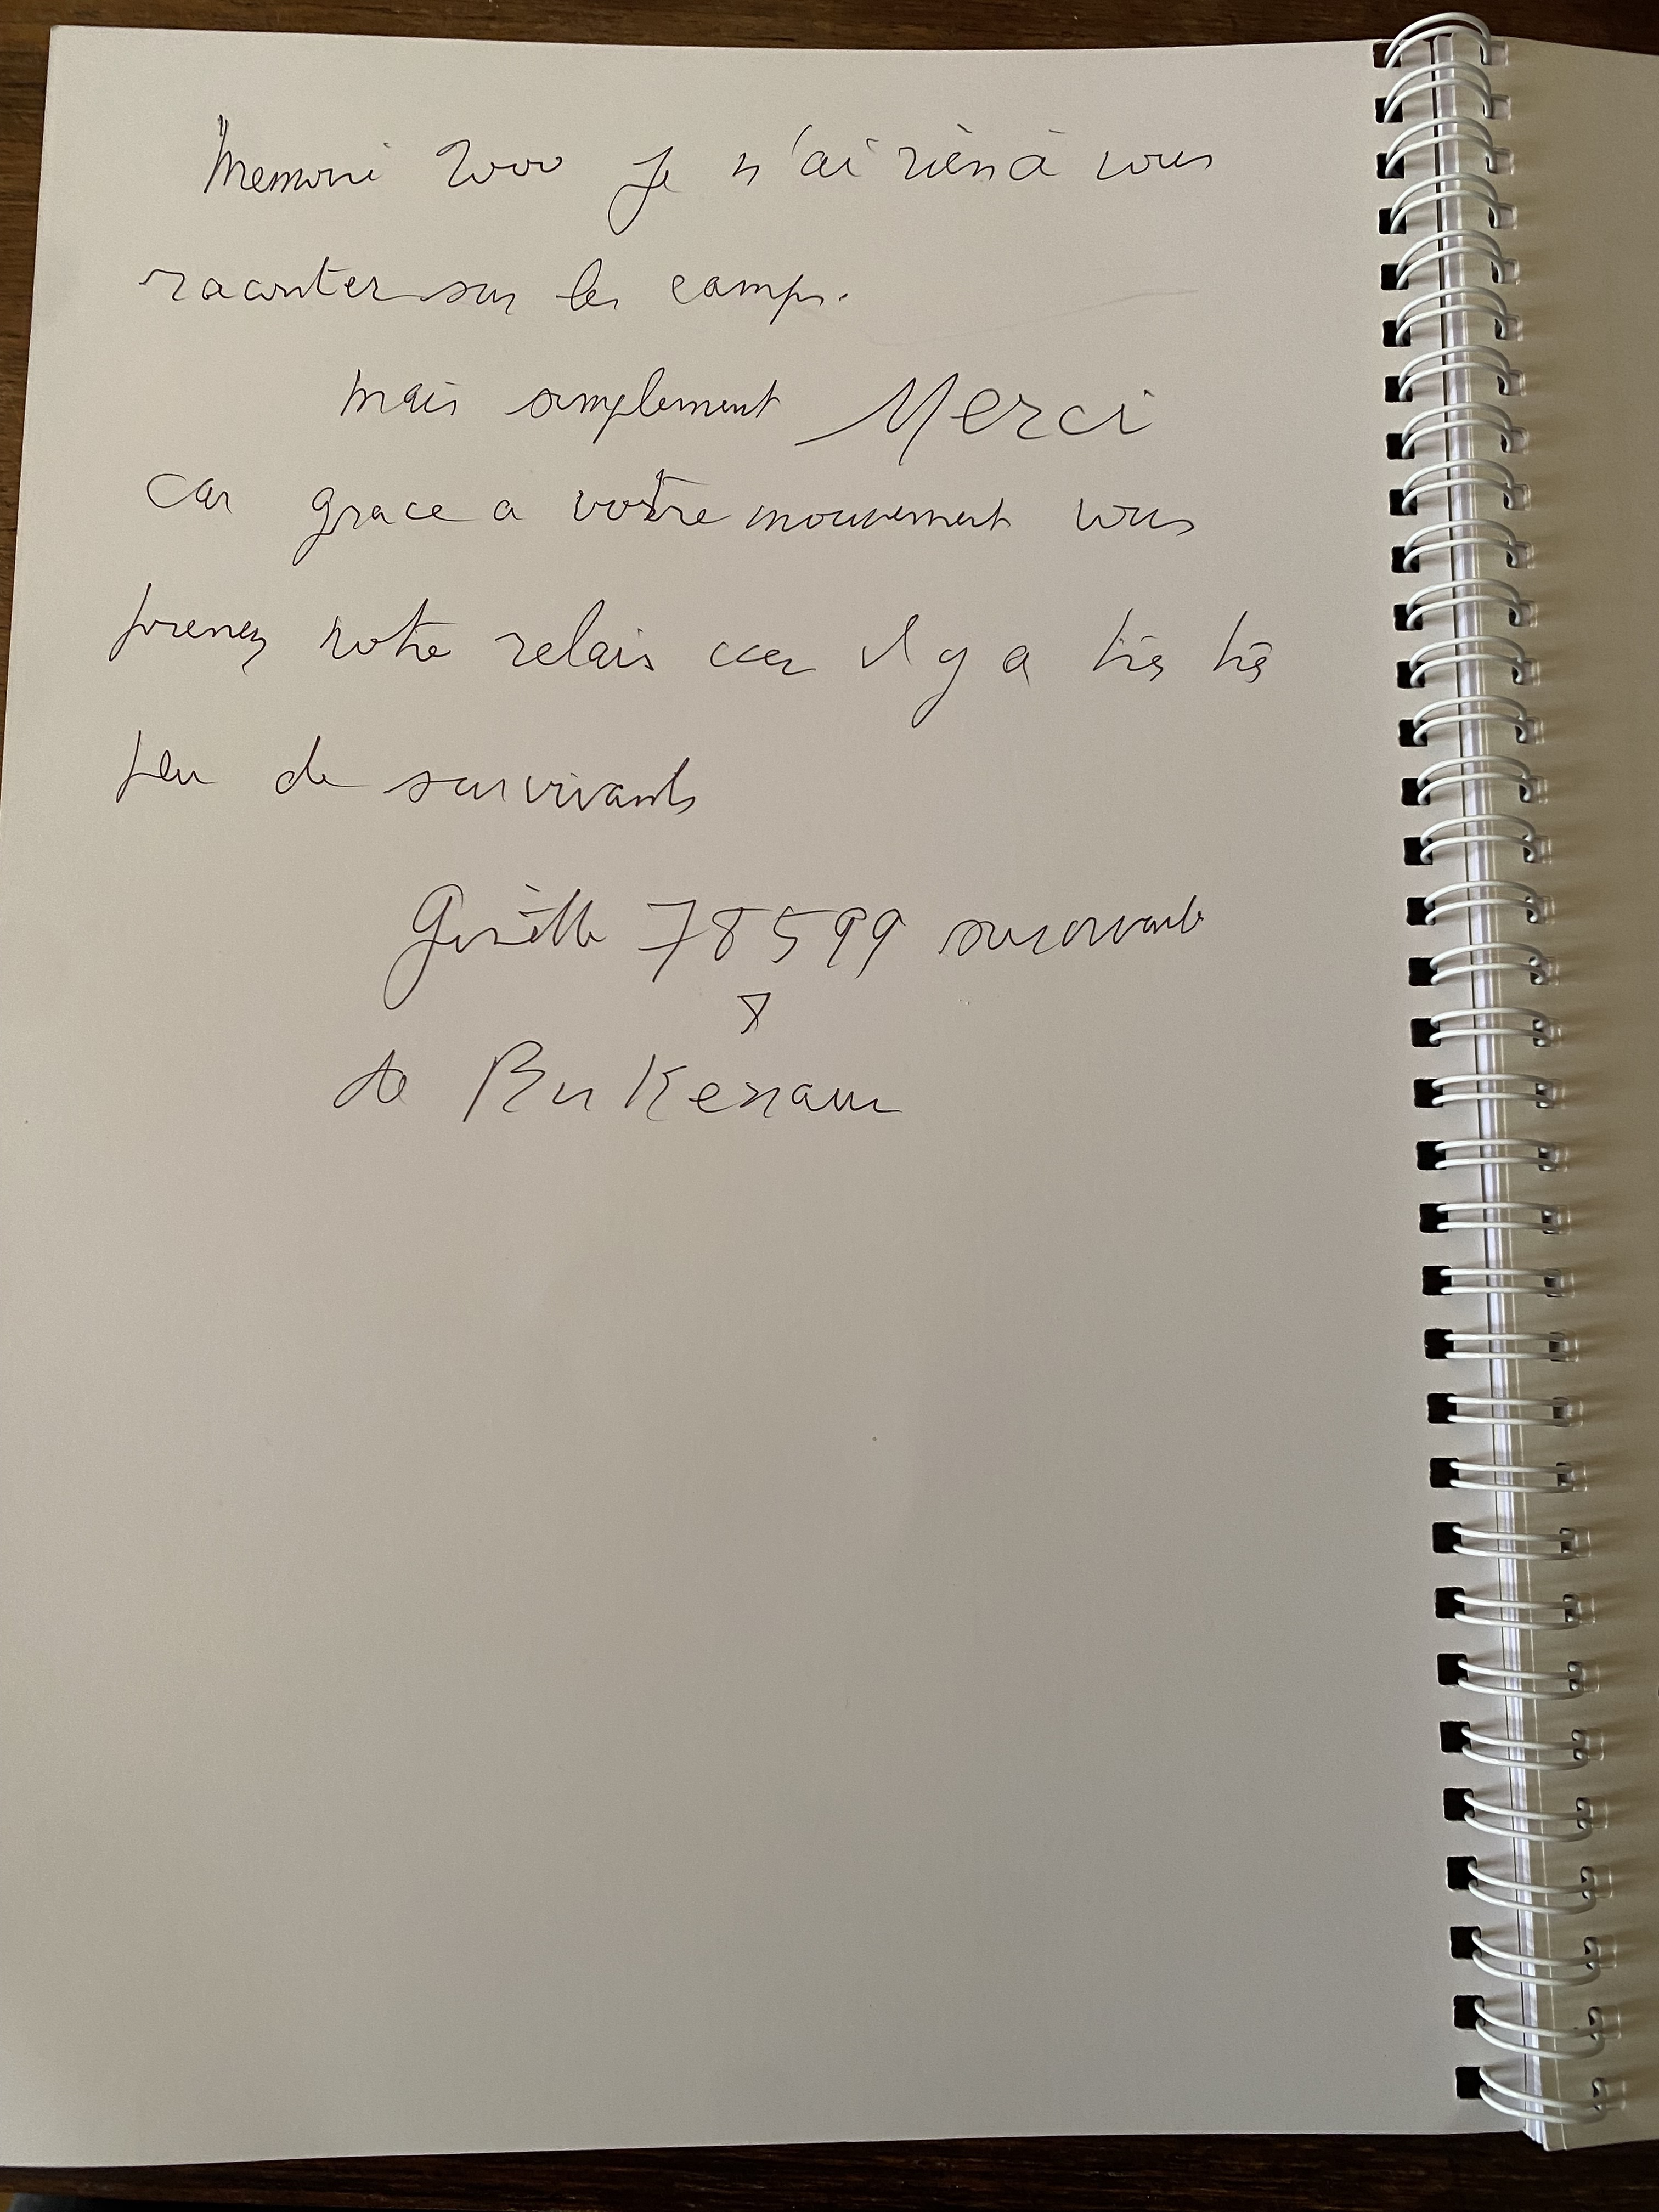 Memoire 2000 Je n'ai rien à vous
raconter sur les camps.
mais simplement Merci
car grace a votre mouvement vous
prenez notre relais car il y a très très
peu de survivants
Ginette 78599 survivante
de Birkenau